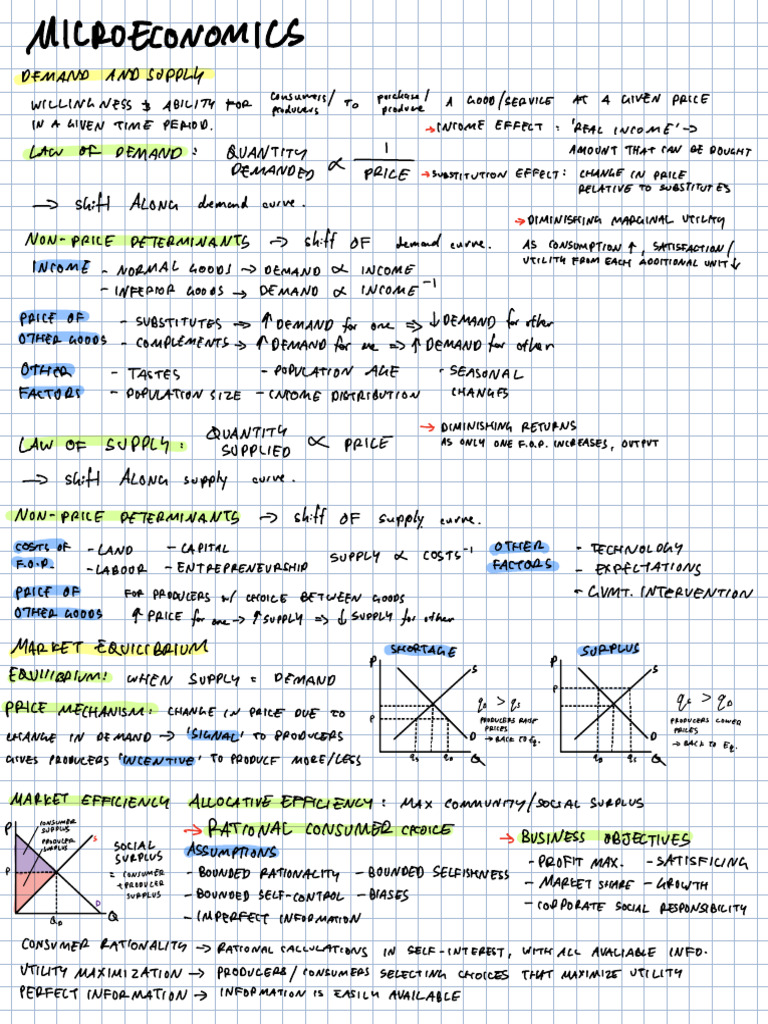 MICROECONOMICS
DEMAND AND SUPPLY
WILLINGNESS & ABILITY FOR consumers/producers TO purchase/produce A GOOD/SERVICE AT A GIVEN PRICE
IN A GIVEN TIME PERIOD.
→ INCOME EFFECT : 'REAL INCOME' →
AMOUNT THAT CAN BE BOUGHT
LAW OF DEMAND : QUANTITY DEMANDED ∝ 1/PRICE
→ SUBSTITUTION EFFECT : CHANGE IN PRICE
RELATIVE TO SUBSTITUTES
→ shift ALONG demand curve.
→ DIMINISHING MARGINAL UTILITY
AS CONSUMPTION ↑, SATISFACTION/
UTILITY FROM EACH ADDITIONAL UNIT ↓
NON-PRICE DETERMINANTS → shift OF demand curve.
INCOME - NORMAL GOODS → DEMAND ∝ INCOME
- INFERIOR GOODS → DEMAND ∝ INCOME⁻¹
PRICE OF
OTHER GOODS
- SUBSTITUTES → ↑ DEMAND for one ⇒ ↓ DEMAND for other
- COMPLEMENTS → ↑ DEMAND for one ⇒ ↑ DEMAND for other
OTHER
FACTORS
- TASTES - POPULATION AGE - SEASONAL
CHANGES
- POPULATION SIZE - INCOME DISTRIBUTION
LAW OF SUPPLY : QUANTITY SUPPLIED ∝ PRICE
→ DIMINISHING RETURNS
AS ONLY ONE F.O.P. INCREASES, OUTPUT
→ shift ALONG supply curve.
NON-PRICE DETERMINANTS → shift OF supply curve.
COSTS OF
F.O.P.
- LAND - CAPITAL
- LABOUR - ENTREPRENEURSHIP
SUPPLY ∝ COSTS⁻¹
OTHER
FACTORS
- TECHNOLOGY
- EXPECTATIONS
- GVMT. INTERVENTION
PRICE OF
OTHER GOODS
FOR PRODUCERS w/ CHOICE BETWEEN GOODS
↑ PRICE for one → ↑ SUPPLY ⇒ ↓ SUPPLY for other
MARKET EQUILIBRIUM
EQUILIBRIUM: WHEN SUPPLY = DEMAND
PRICE MECHANISM: CHANGE IN PRICE DUE TO
CHANGE IN DEMAND → 'SIGNAL' TO PRODUCERS
GIVES PRODUCERS 'INCENTIVE' TO PRODUCE MORE/LESS
SHORTAGE
P
S
P
D
qS qD Q
qD > qS
PRODUCERS RAISE
PRICES
→ BACK TO EQ.
SURPLUS
P
S
P
D
qD qS Q
qS > qD
PRODUCERS LOWER
PRICES
→ BACK TO EQ.
MARKET EFFICIENCY ALLOCATIVE EFFICIENCY : MAX COMMUNITY/SOCIAL SURPLUS
P
CONSUMER
SURPLUS
PRODUCER
SURPLUS
S
P
D
QD
Q
SOCIAL
SURPLUS
= CONSUMER
+ PRODUCER
SURPLUS
→ RATIONAL CONSUMER CHOICE
ASSUMPTIONS
- BOUNDED RATIONALITY - BOUNDED SELFISHNESS
- BOUNDED SELF-CONTROL - BIASES
- IMPERFECT INFORMATION
→ BUSINESS OBJECTIVES
- PROFIT MAX. - SATISFICING
- MARKET SHARE - GROWTH
- CORPORATE SOCIAL RESPONSIBILITY
CONSUMER RATIONALITY → RATIONAL CALCULATIONS IN SELF-INTEREST, WITH ALL AVALIABLE INFO.
UTILITY MAXIMIZATION → PRODUCERS/CONSUMERS SELECTING CHOICES THAT MAXIMIZE UTILITY
PERFECT INFORMATION → INFORMATION IS EASILY AVAILABLE